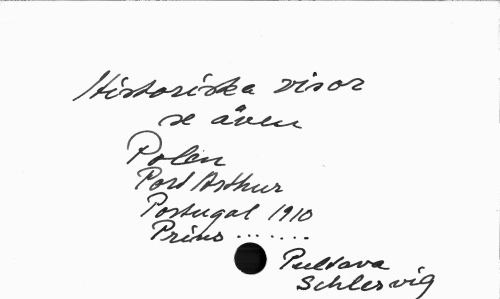 Historiska visor
se även
Polen
Port Arthur
Portugal 1910
Prins .......
Pultava
Schlesvig